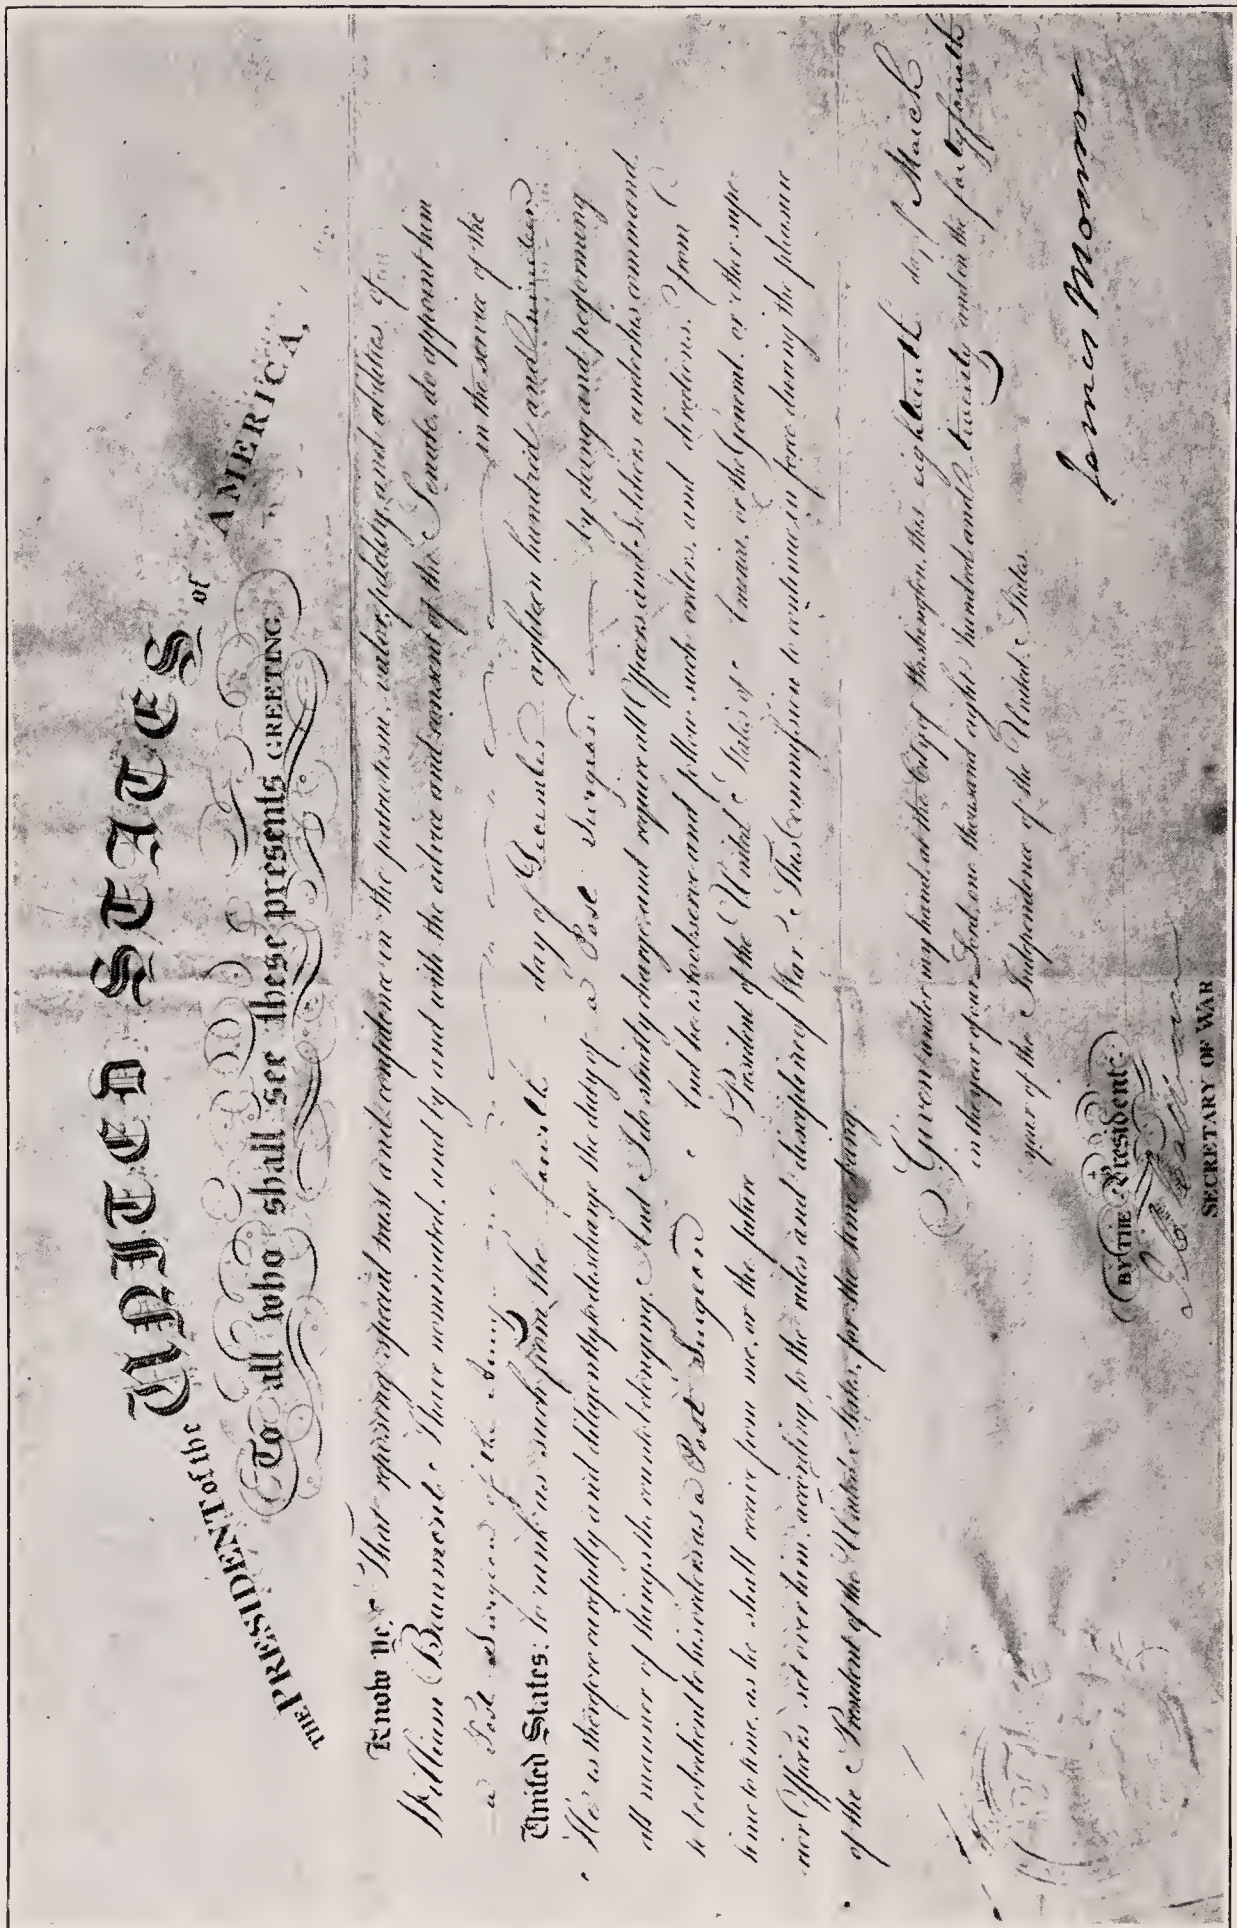 THE PRESIDENT of the UNITED STATES of AMERICA,
To all who shall see these presents GREETING.
Know Ye, That reposing special trust and confidence in the patriotism, valor, fidelity, and abilities of
William Beaumont I have nominated, and by and with the advice and consent of the Senate, do appoint him
a Post Surgeon of the Army in the service of the
United States: to rank as such from the fourth day of December eighteen hundred and nineteen
He is therefore carefully and diligently to discharge the duty of a Post Surgeon by doing and performing
all manner of things thereunto belonging. And I do strictly charge, and require all Officers and Soldiers under his command
to be obedient to his orders as a Post Surgeon And he is to observe and follow such orders, and directions, from
time to time, as he shall receive from me, or the future President of the United States of America, or the General, or other supe-
rior Officers set over him, according to the rules and discipline of War. This Commission to continue in force during the pleasure
of the President of the United States, for the time being.
Given under my hand, at the City of Washington, this eighteenth day of March
in the year of our Lord one thousand eight hundred and twenty and in the forty fourth
year of the Independence of the United States.
James Monroe
BY THE President
J C Calhoun
SECRETARY OF WAR